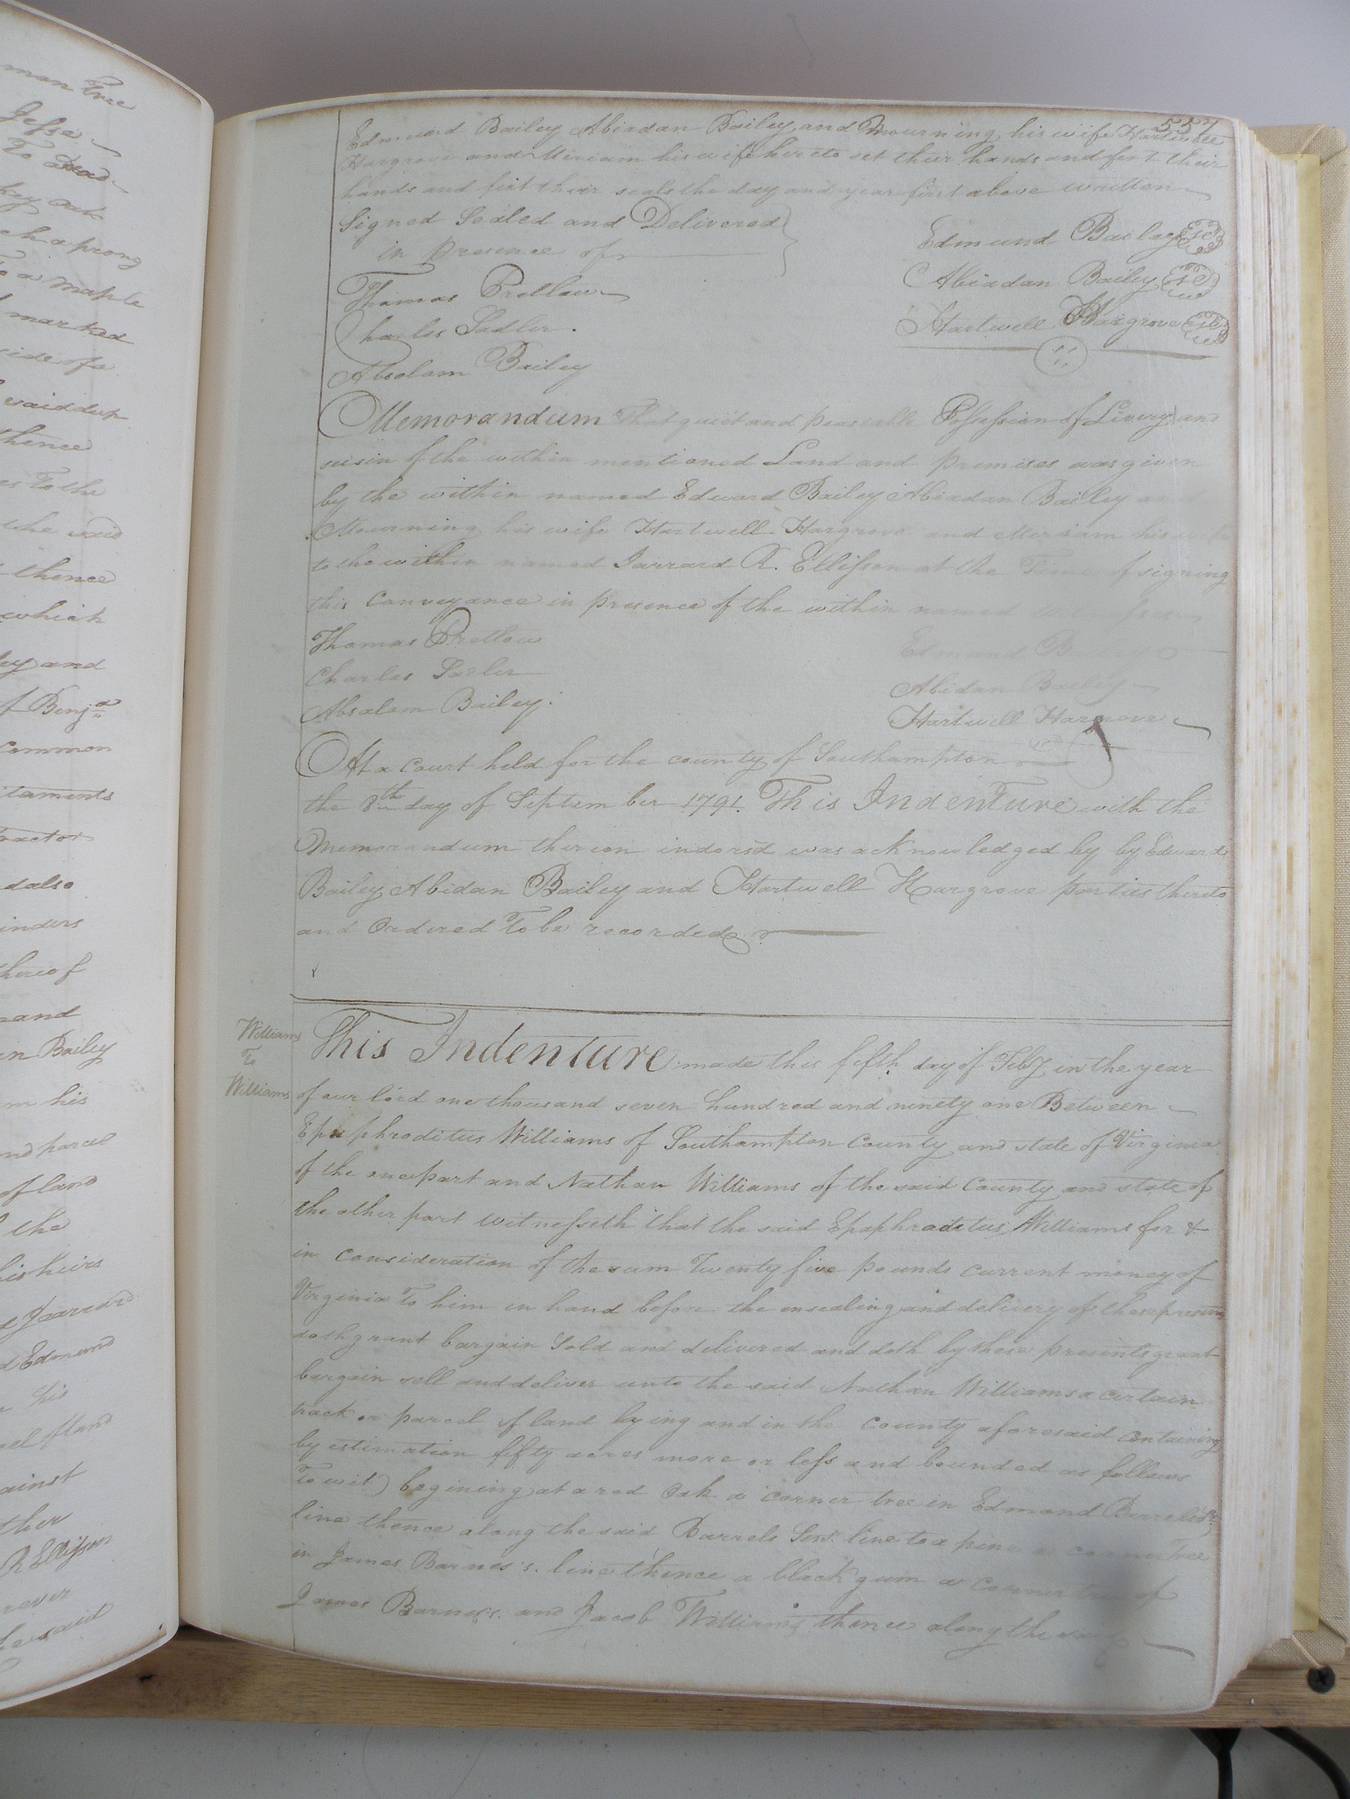 man Tree
Jesse
To Dod
key oak
ch & prong
To a maple
marked
side of a
said dup
thence
es To the
the said
thence
which
ey and
f Benja
common
itaments
ractor
d also
inders
thereof
and
n Bailey
m his
nd parcel
of land
the
his heirs
Jarrard
d Edmund
his
cel of land
ainst
ther
R Ellisson
rever
he said
557
Edmund Bailey Abiadan Bailey and Mourning his wife Hartwell
Hargrove and Miriam his wife hereto set their hands and fixt their
hands and fixt their seals the day and year first above written
Signed Sealed and Delivered
in presence of
Edmund Bailey
Abiadan Bailey
Hartwell Hargrove
Thomas Pretlow
Charles Sadler.
Absalam Bailey
Memorandum That quiet and peaceable Possession of Livery and
seisin of the within mentioned Land and premises was given
by the within named Edward Bailey Abiadan Bailey an
Mourning his wife Hartwell Hargrove and Meriam his wife
to the within named Jarrard R. Ellisson at the Time of signing
this Conveyance in presence of the within named
Thomas Pretlow
Charles Sadler
Absalam Bailey.
Edmund Bailey
Abidan Bailey
Hartwell Hargrove
At a Court held for the county of Southampton
the 8th day of September 1791. This Indenture with the
Memorandum thereon indorsd was acknowledged by by Edward
Bailey Abidan Bailey and Hartwell Hargrove parties thereto
and Ordered To be recorded
Williams
To
Williams
This Indenture made this fifth day of Feby in the year
of our lord one thousand seven hundred and ninety one Between
Epaphroditus Williams of Southampton County and state of Virginia
of the one part and Nathan Williams of the said County and state of
the other part witnesseth that the said Epaphraditus Williams for &
in consideration of the sum Twenty five pounds current money of
Virginia To him in hand before the ensealing and delivery of these presents
doth grant bargain Sold and delivered and doth by these presents grant
bargain sell and deliver unto the said Nathan Williams a certain
track or parcel of land lying and in the County aforesaid containing
by estimation fifty acres more or less and bounded as follows
To wit) begining at a red Oak a corner tree in Edmond Barrels Sr
line thence along the said Barrels Senr. line to a pine a corner Tree
in James Barnes's. line thence a black gum a corner tree of
James Barness. and Jacob Williams thence along the said